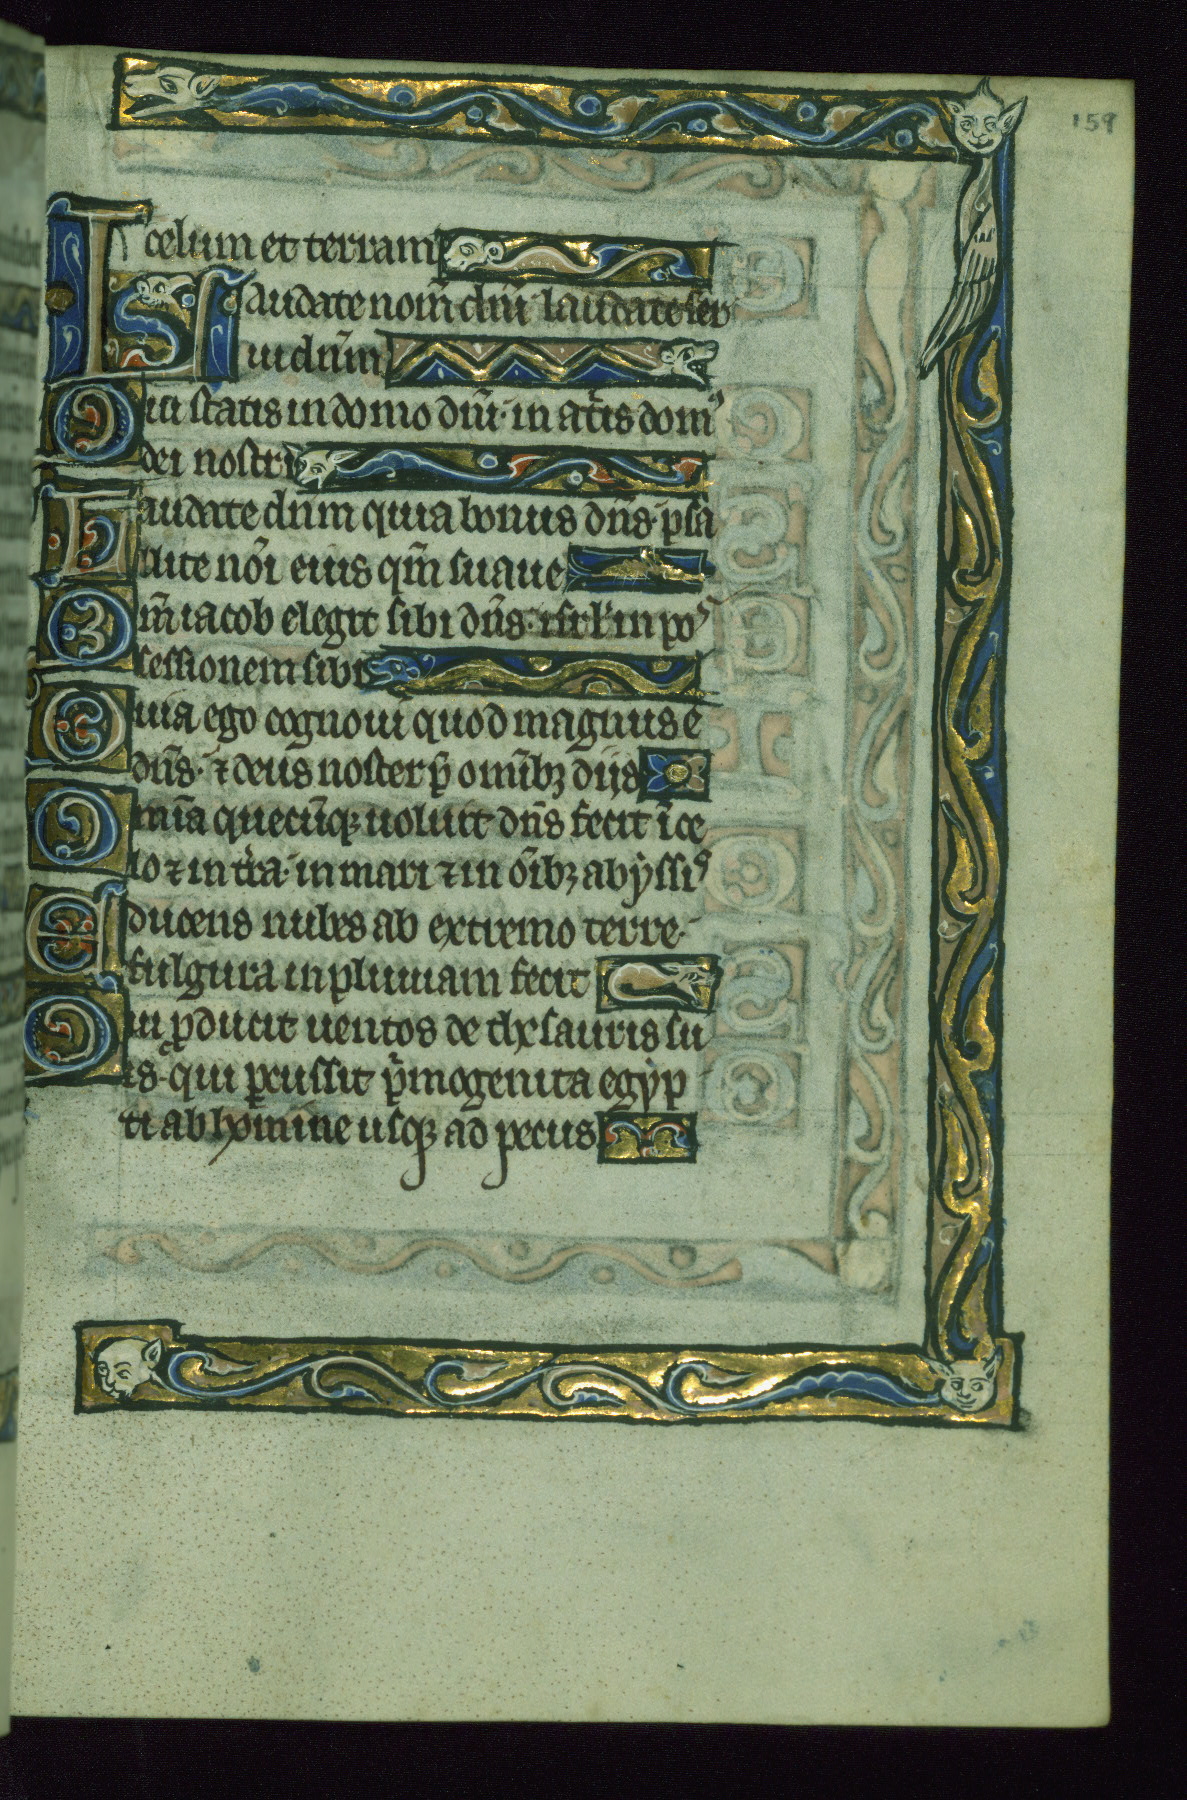 159
celum et terram
Laudate nom̄ dn̄i laudate ser
ui dn̄m
Qui statis in domo dn̄i· in at̾is domꝰ
dei nostri
Laudate dn̄m quia bonus dn̄s· psa
llite nōi eius qm̄ suaue
Qm̄ iacob elegit sibi dn̄s· isrl̄ in poſ
sessionem sibi
Quia ego cognoui quod magnus ē
dn̄s· ⁊ deus noster p̄ omībꝫ dijs
Omīa quecūqꝫ uoluit dn̄s fecit ī ce
lo ⁊ in t̾ra· in mari ⁊ in oībꝫ abyssiꝰ
Educens nubes ab extremo terre·
fulgura in pluuiam fecit
Qui ꝓducit uentos de thesauris su
is· qui ꝑcussit p̾mogenita egyp
ti ab homine usqꝫ ad pecus